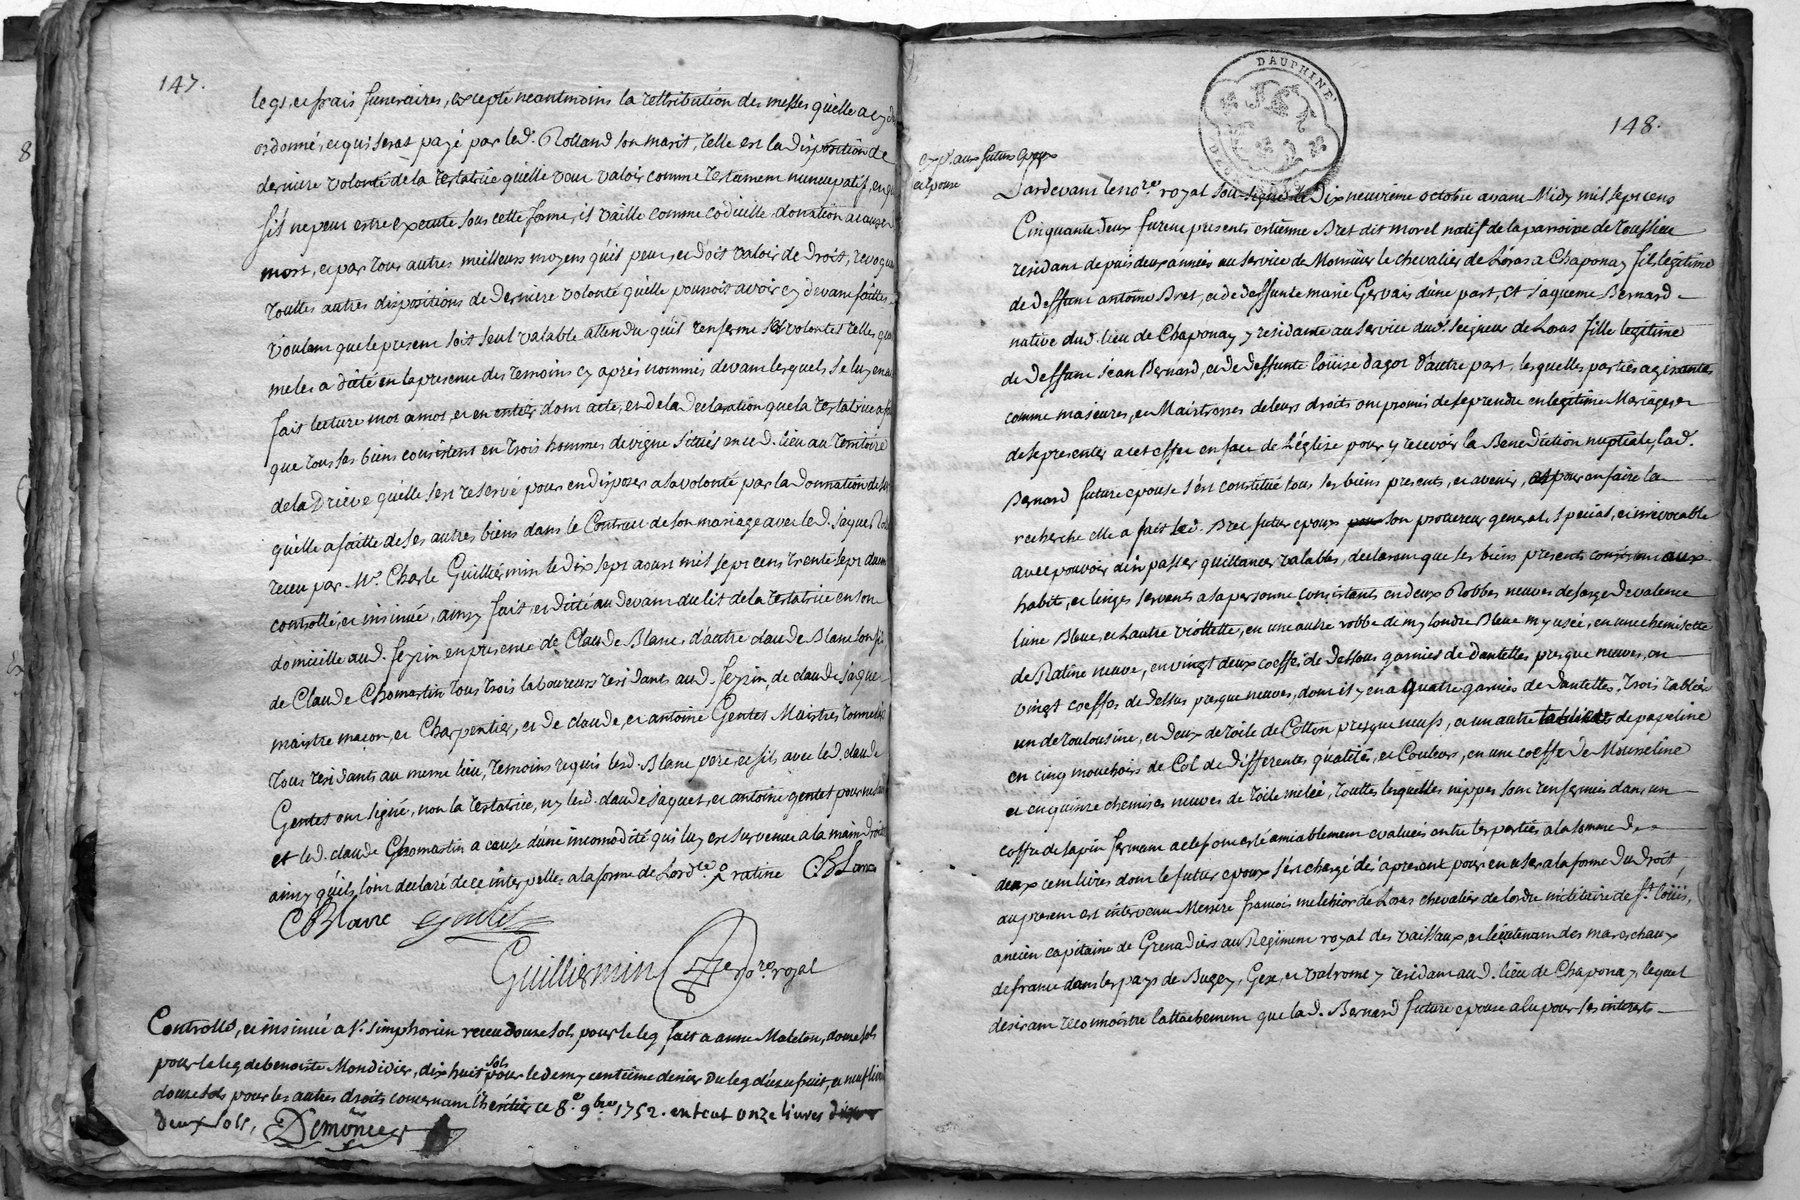 147.
legs et frais funeraires, excepté neantmoins la rettribution des messes quelle a cy
ordonné, et qui seras payé par led. Rolland son marit, telle est la disposition de
derniere volonté de la testatrice quelle veut valoir comme testament nuncupatif, et
s'il ne peut estre executé sous cette forme, il vaille comme codicille donation a cause
mort, et par tous autres meilleurs moyens quil peut, et doit valoir de droit, revoque
touttes autres dispositions de derniere volonté quelle pourroit avoir cy devant faittes
voulant que le present soit seul valable attendu quil renferme ses volontés telles
me les a dicté en la presence des temoins cy apres nommés devant lesquels je luy en ai
fait lecture mot a mot, et en entier, dont acte, et de la declaration que la testatrice a
que tous ses biens consistent en trois hommes de vigne situés en ced. lieu au territoire
de la Drieve quelle s'en reservé pour en disposer a sa volonté par la donnation de
quelle a faitte de ses autres biens dans le Contract de son mariage avec led. Jaques
receu par Me. Charle Guilliermin le dix sept aoust mil sept cens trente sept
controllé, et insinué, ainsy fait, et dicté au devant du lit de la testatrice en son
domicille aud. feyzin en presence de Claude Blanc, d'autre Claude Blanc son fils
de Claude Chomartin tous trois laboureurs residants aud. feyzin, de Claude Jaquet
maistre macon, et Charpentier, et de Claude, et antoine Gentet Maistres
tous residants au meme lieu, temoins requis lesd. Blanc pere, et fils avec led. Claude
Gentet ont signé, non la testatrice, ny lesd. Claude Jaquet, et antoine gentet pour
et led. Claude Chomartin a cause d'une incomodité qui luy est survenue a la main droite
ainsy qu'ils l'ont declaré de ce interpellés a la forme de Lord.ce ratine CBLanc
CBLanc Gentet
Guilliermin no.re royal
Controllé, et insinué a St. Simphorien receu douse sols pour le leg fait a anne Maleton, douse sols
pour le leg de benoitte Mondidier, dix huit sols pour le demy centieme denier du leg d'usufruit, et neuf livres
douse sols pour les autres droits concernant l'heritier ce 8.e 9bre 1752. en tout onze livres
deux sols, Demonier
148.
DAUPHINÉ
exp. aux futurs epoux
et epouse
Pardevant le no.re royal sousigné le Dix neuvieme octobre avant Midy mil sept cens
Cinquante deux furent presents estienne Bret dit morel natif de la parroisse de Toussieu
residant depuis deux années au service de Monsieur le chevalier de Loras a Chaponay fils legitime
de deffunt antoine Bret, et de deffunte marie Gervais d'une part, Et Jaqueme Bernard
native dud. lieu de Chaponay y residante au service dud. seigneur de Loras fille legitime
de deffunt jean Bernard, et de deffunte loüise dagot d'autre part, lesquelles parties agissantes
comme majeures, et Maitresses de leurs droits ont promis de se prendre en legitime Mariage, et
de se presenter a cet effet en face de L'église pour y recevoir la Benediction nuptiale, lad.
Bernard future epouse s'est constitué tous ses biens presents, et avenir, et pour en faire la
recherche elle a fait led. Bret futur epoux son procureur general, special, et irrevocable
avec pouvoir d'en passer quittances valables, declarant que ses biens presents consistent aux
habits, et linges servants a sa personne consistants en deux Robbes neuves de sarge de valence
l'une Bleue, et L'autre viollette, en une autre robbe demy londre Bleue my usée, en une chemisette
de Ratine neuve, en vingt deux coeffes de dessous garnies de dantelles presque neuves, en
vingt coeffes de dessus presque neuves, dont il y en a quatre garnies de dantelles, trois tabliés
un de toulousine, et deux de toile de Cotton presque neufs, et un autre de papeline
en cinq mouchoirs de Col de differentes qualités, et Couleurs, en une coeffe de Mousseline
et en quinze chemises neuves de toile melée, touttes lesquelles nippes sont renfermés dans un
coffre de sapin fermant a clef, et ont esté amiablement evaluées entre les parties a la somme de
deux cent livres dont le futur epoux s'est chargé dés apresent pour en user a la forme du droit,
au present est intervenu Messire francois melchior de Loras chevalier de l'ordre militaire de St. loüis,
ancien capitaine de Grenadiers au Regiment royal des vaissaux, et lieutenant des marechaux
de france dans les pays de Bugey, Gex, et valromey residant aud. lieu de Chaponay, lequel
desirant reconnoitre l'attachement que lad. Bernard future epouse a eu pour ses interets